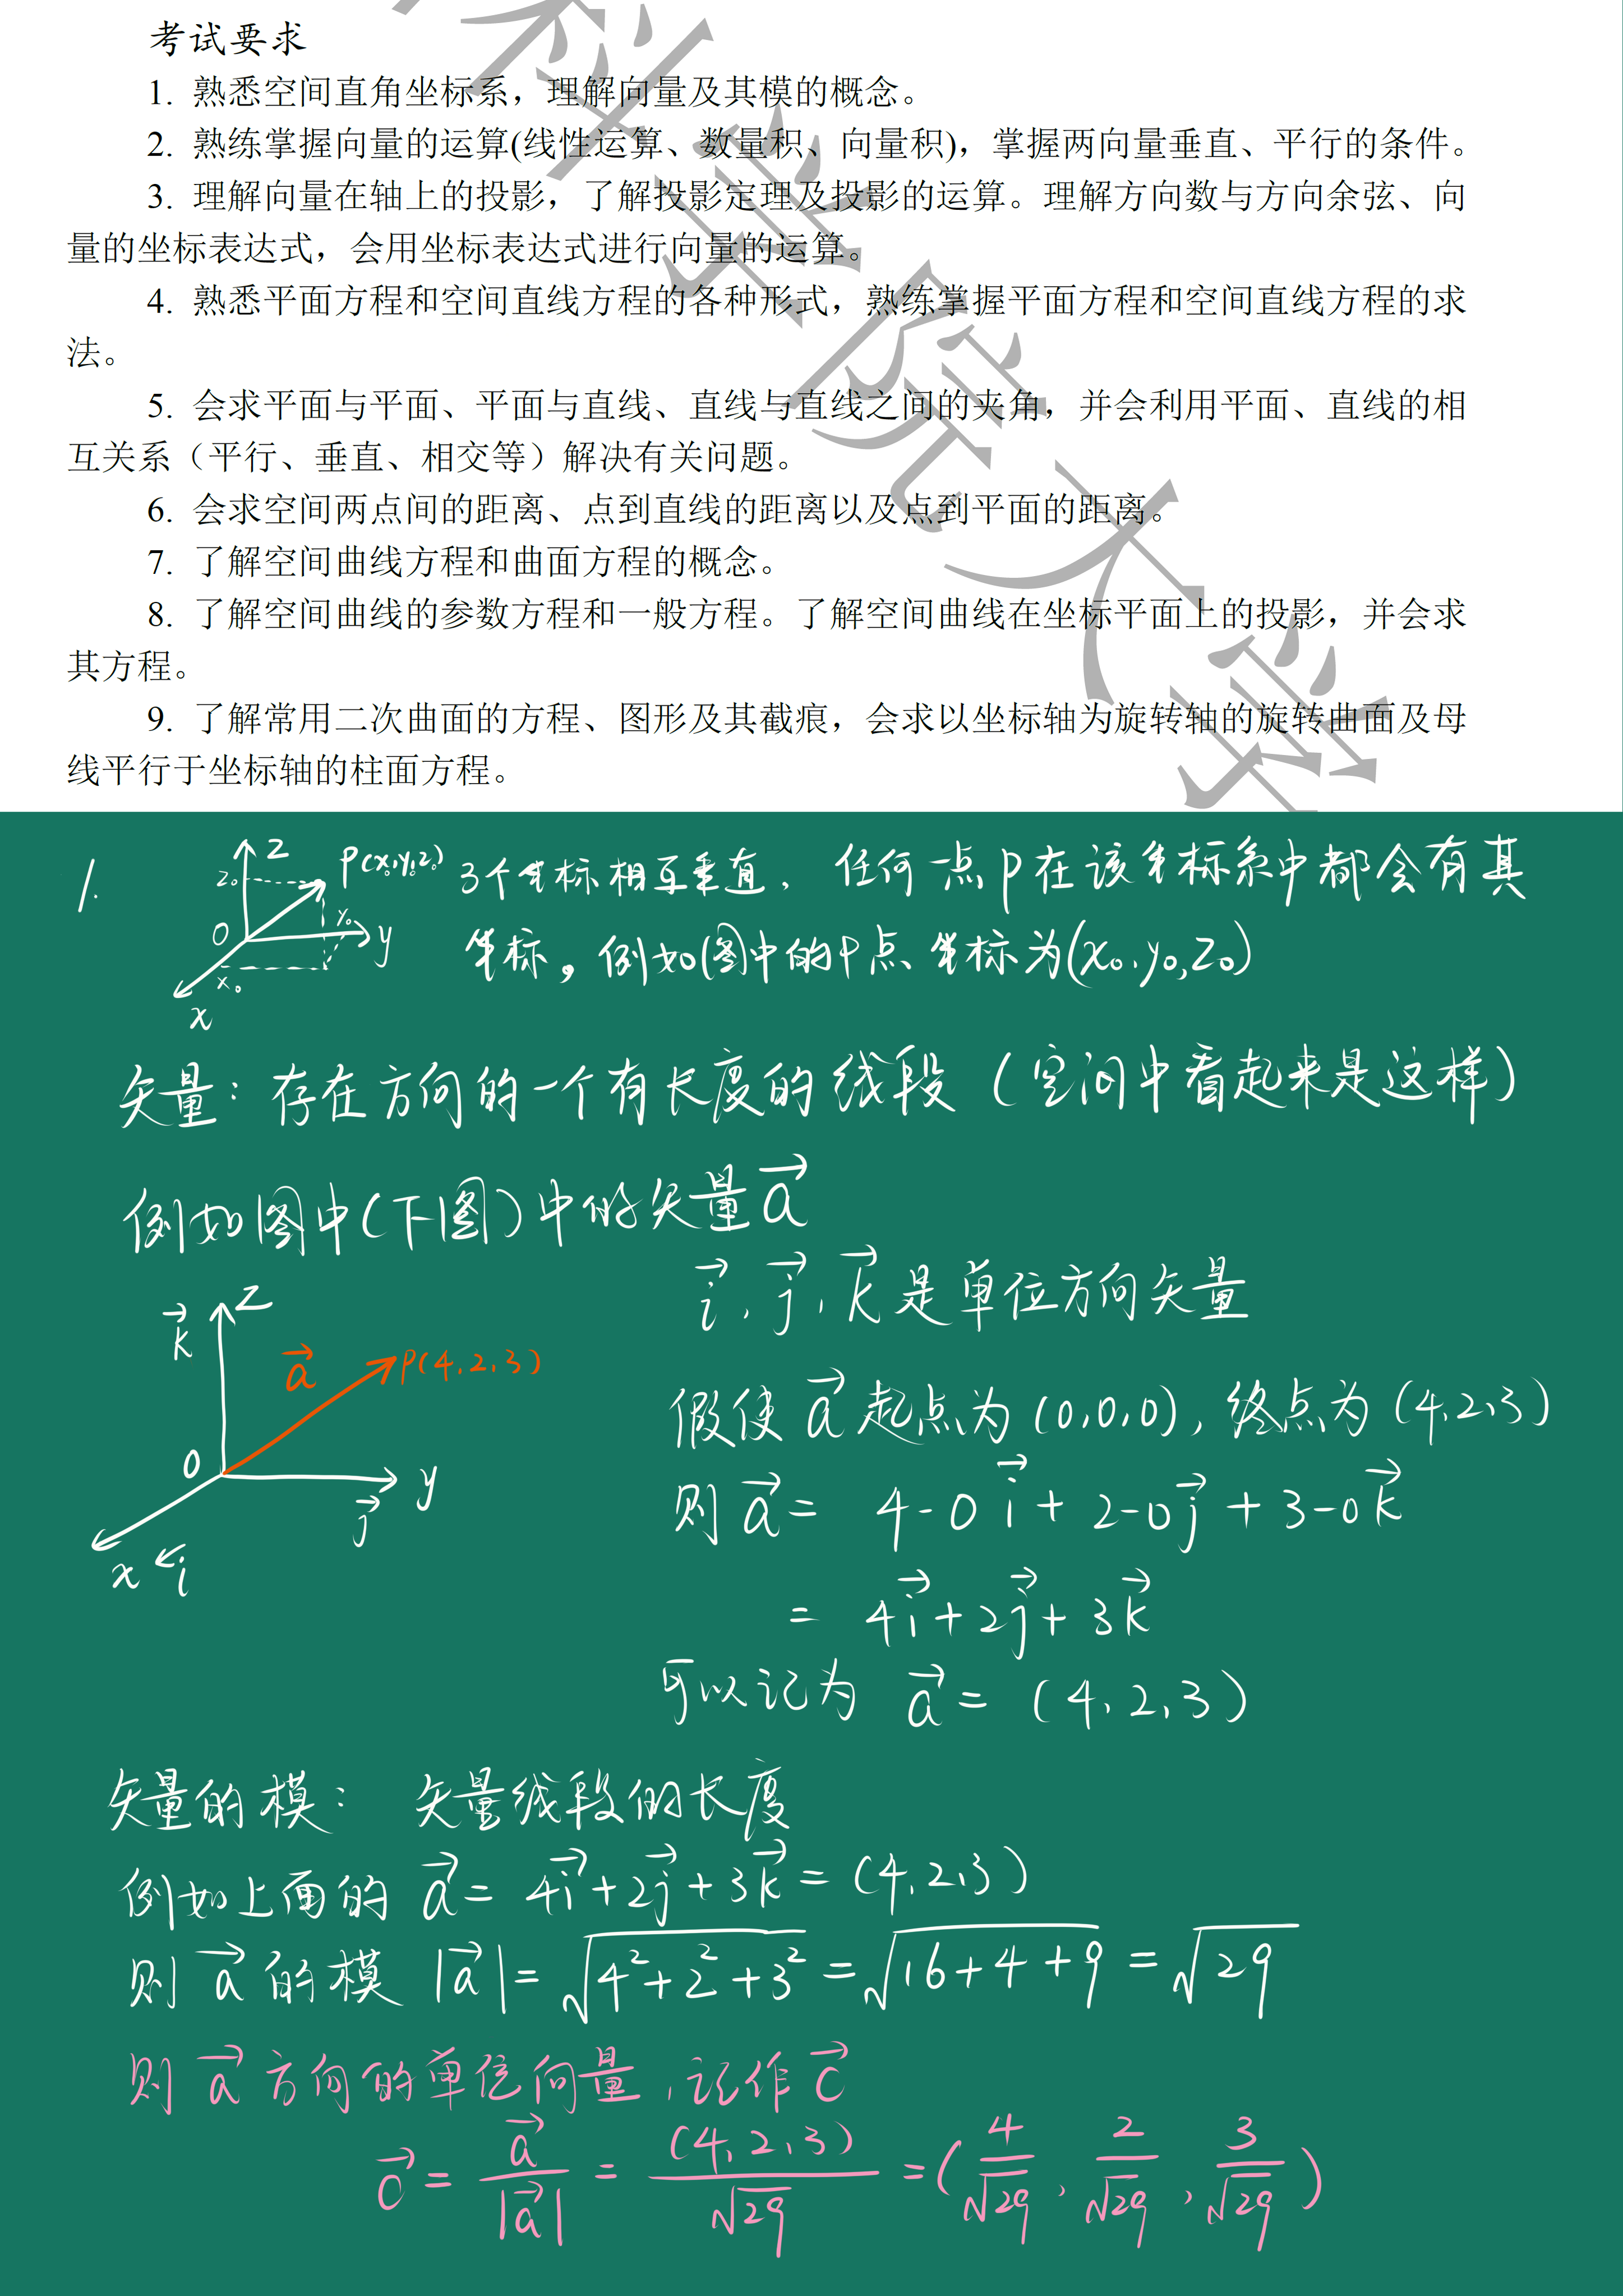 考试要求
1. 熟悉空间直角坐标系，理解向量及其模的概念。
2. 熟练掌握向量的运算(线性运算、数量积、向量积)，掌握两向量垂直、平行的条件。
3. 理解向量在轴上的投影，了解投影定理及投影的运算。理解方向数与方向余弦、向
量的坐标表达式，会用坐标表达式进行向量的运算。
4. 熟悉平面方程和空间直线方程的各种形式，熟练掌握平面方程和空间直线方程的求
法。
5. 会求平面与平面、平面与直线、直线与直线之间的夹角，并会利用平面、直线的相
互关系（平行、垂直、相交等）解决有关问题。
6. 会求空间两点间的距离、点到直线的距离以及点到平面的距离。
7. 了解空间曲线方程和曲面方程的概念。
8. 了解空间曲线的参数方程和一般方程。了解空间曲线在坐标平面上的投影，并会求
其方程。
9. 了解常用二次曲面的方程、图形及其截痕，会求以坐标轴为旋转轴的旋转曲面及母
线平行于坐标轴的柱面方程。
科学院大学
1.
z
z₀
P(x₀,y₀,z₀)
O
y₀
y
x₀
x
3个坐标相互垂直，任何一点P在该坐标系中都会有其
坐标。例如图中的P点坐标为(x₀,y₀,z₀)
矢量：存在方向的一个有长度的线段（空间中看起来是这样）
例如图中(下图)中的矢量a⃗
i⃗,j⃗,k⃗是单位方向矢量
k⃗ z
a⃗ P(4,2,3)
O
y
j⃗
x i⃗
假使a⃗起点为(0,0,0),终点为(4,2,3)
则a⃗= 4-0i⃗+2-0j⃗+3-0k⃗
= 4i⃗+2j⃗+3k⃗
可以记为 a⃗=(4,2,3)
矢量的模： 矢量线段的长度
例如上面的a⃗=4i⃗+2j⃗+3k⃗=(4,2,3)
则a⃗的模|a⃗|=√(4²+2²+3²)=√(16+4+9)=√29
则a⃗方向的单位向量,记作c⃗
c⃗=a⃗/|a⃗|=(4,2,3)/√29=(4/√29,2/√29,3/√29)